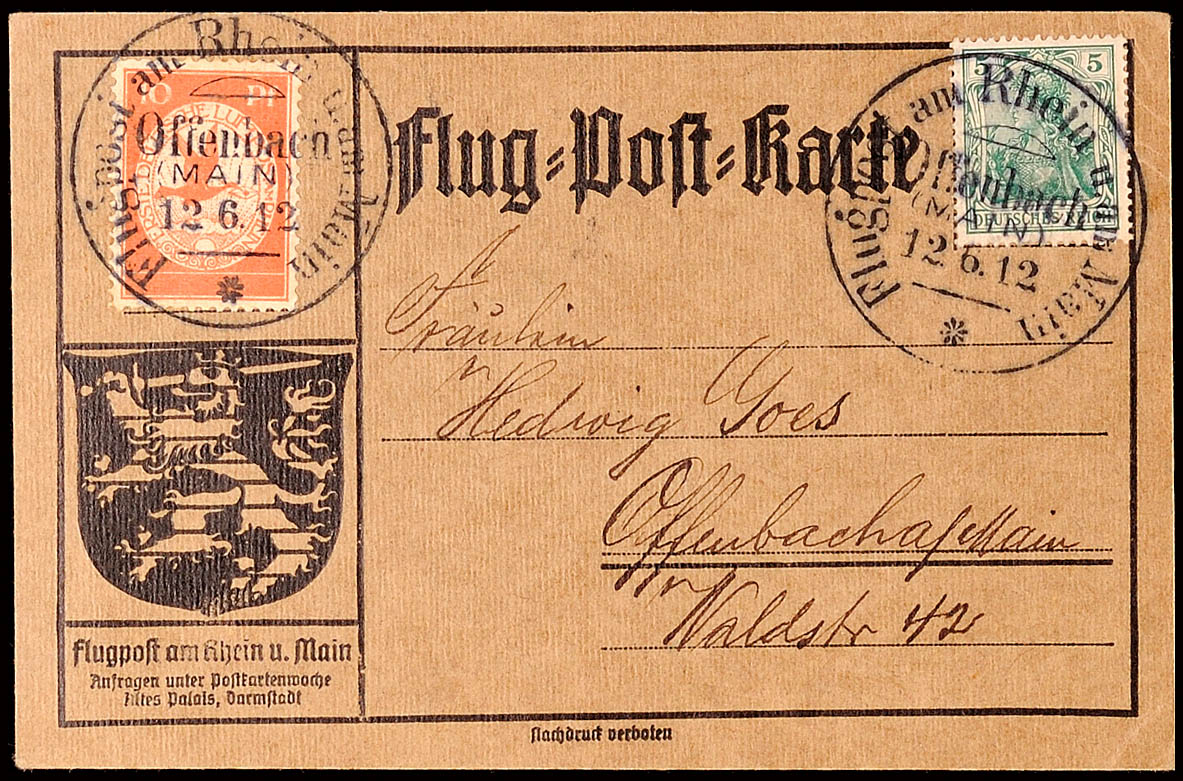 10 Pf
Flugpost am Rhein u. am Main
Offenbach
(MAIN)
12.6.12
Flug-Post-Karte
5 5
DEUTSCHES REICH
Flugpost am Rhein u. am Main
Offenbach
(MAIN)
12.6.12
Fräulein
Hedwig Goes
Offenbach a/Main
Waldstr 42
Flugpost am Rhein u. Main
Anfragen unter Postkartenwoche
Altes Palais, Darmstadt
Nachdruck verboten